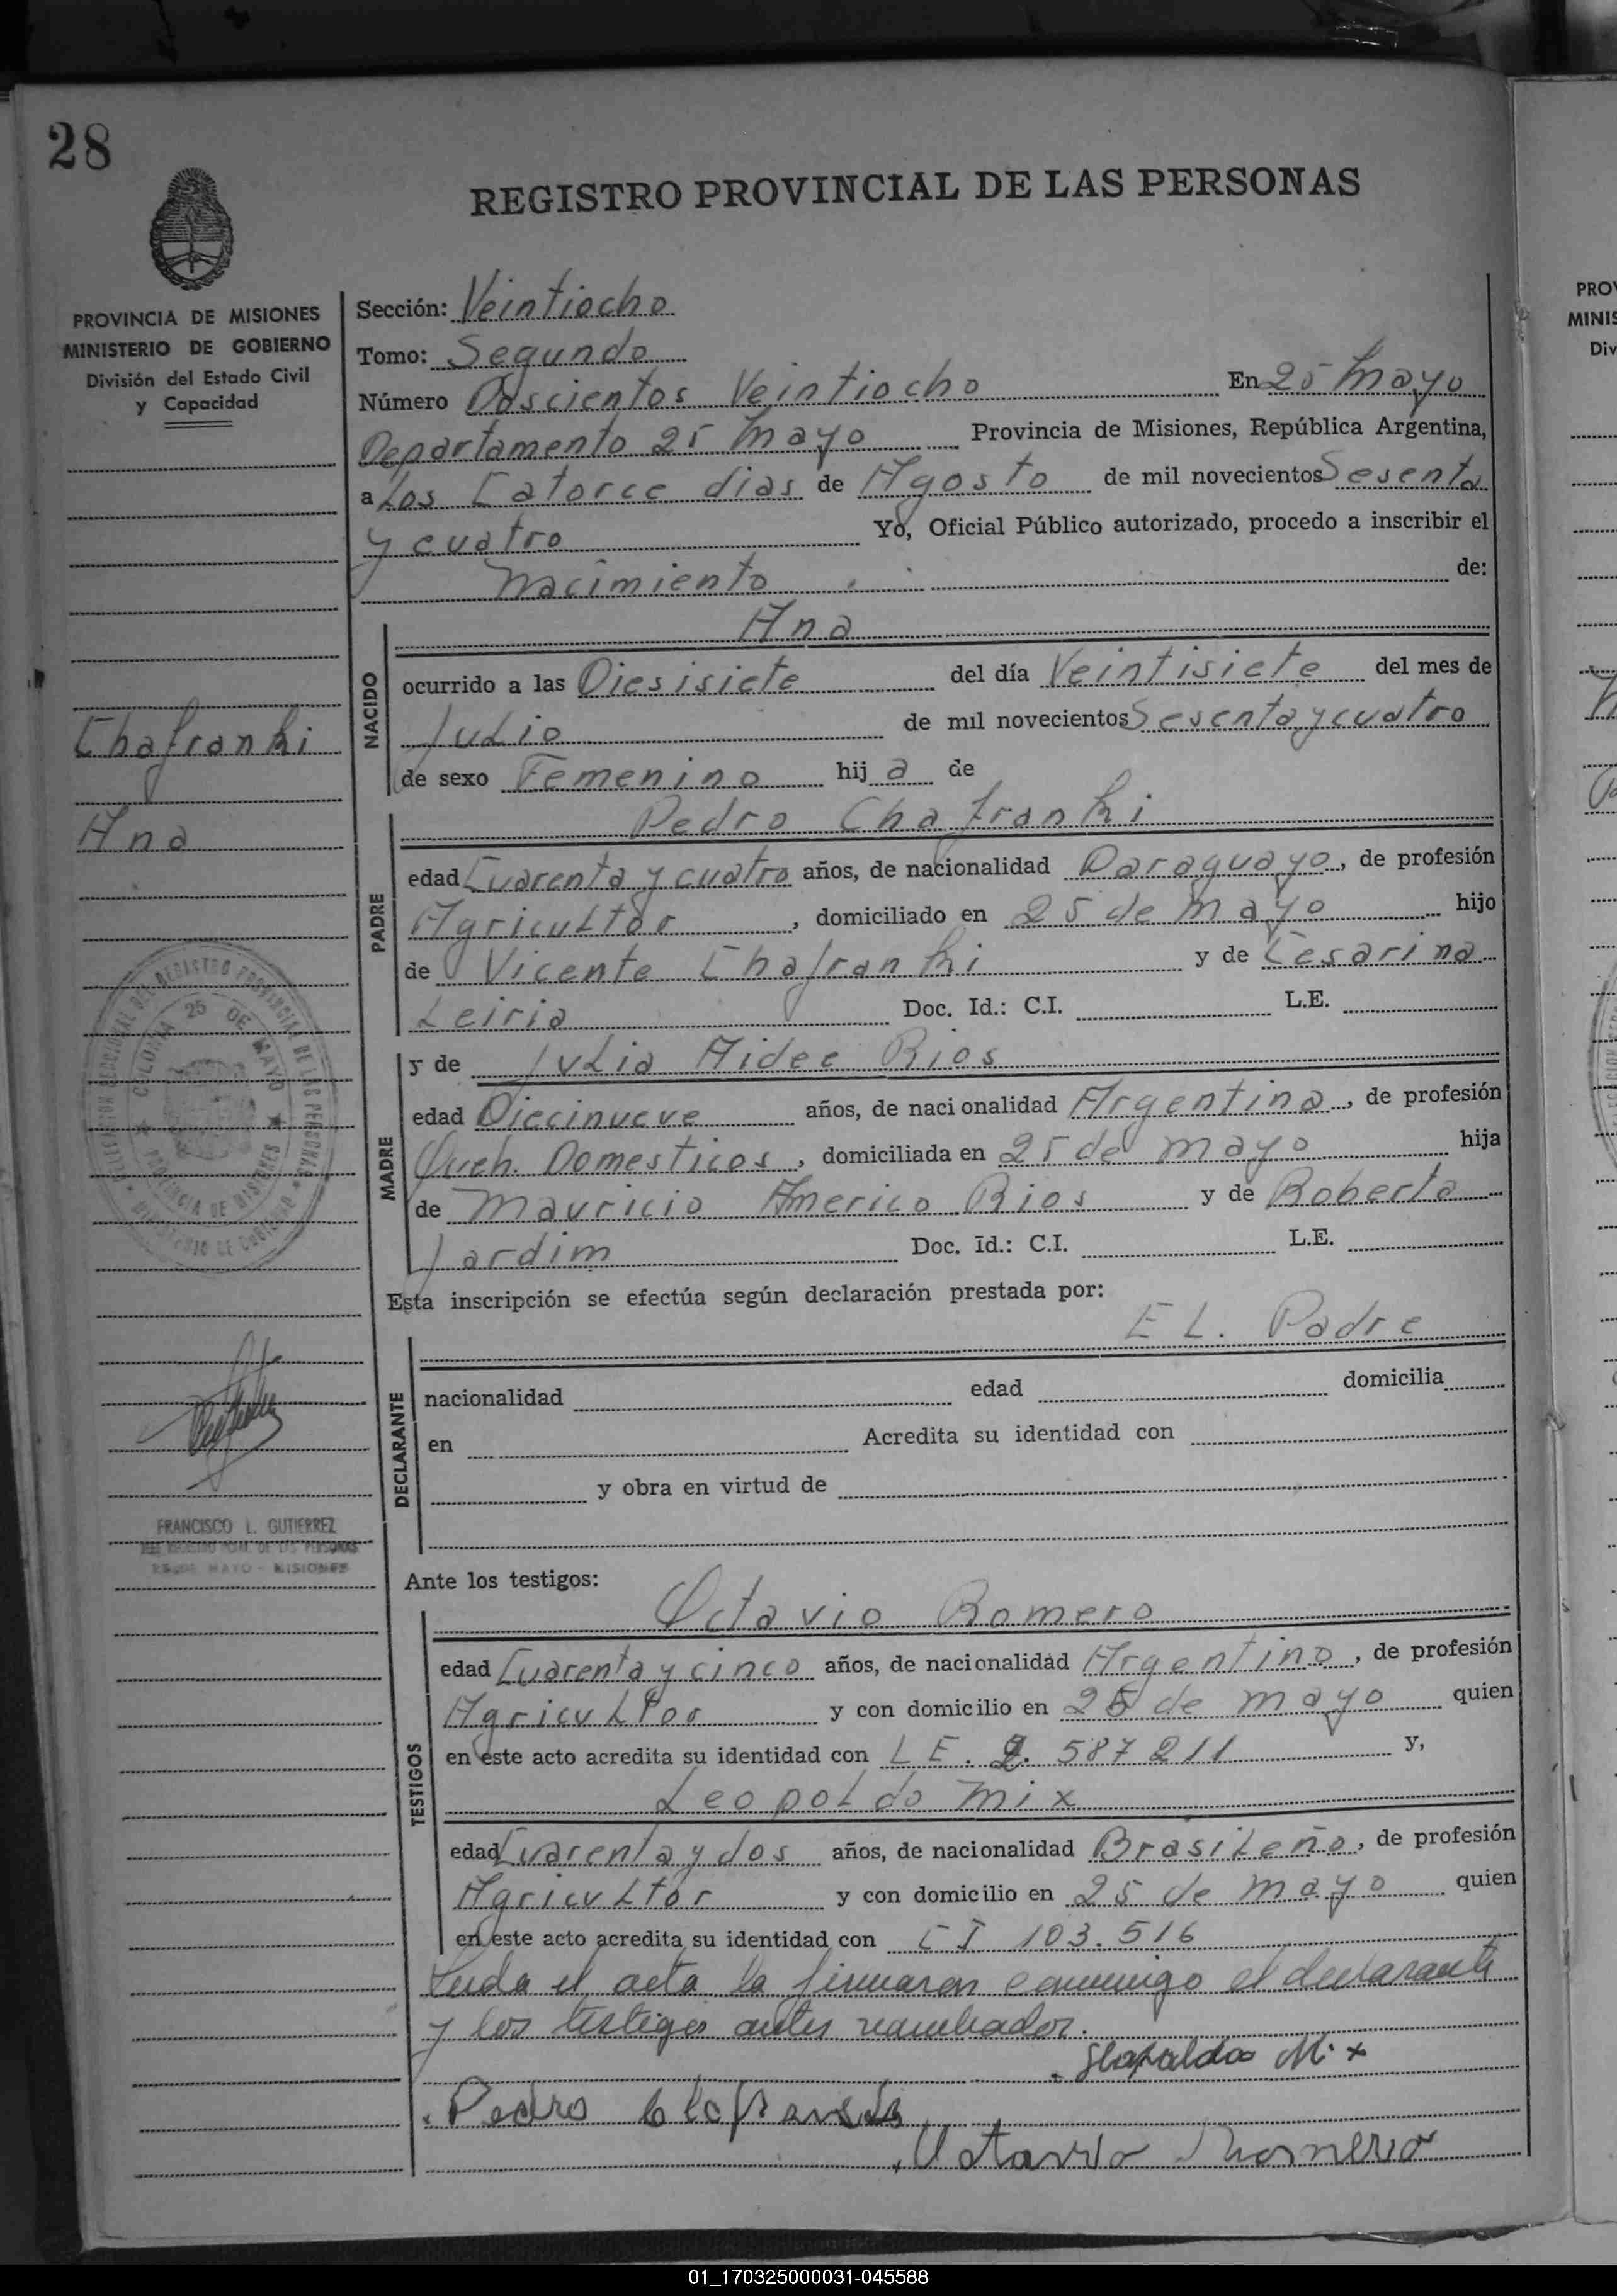 28
REGISTRO PROVINCIAL DE LAS PERSONAS
PROVINCIA DE MISIONES
MINISTERIO DE GOBIERNO
División del Estado Civil
y Capacidad
Sección: Veintiocho
Tomo: Segundo
Número Doscientos Veintiocho En 25 Mayo
Departamento 25 Mayo Provincia de Misiones, República Argentina,
a Los Catorce dias de Agosto de mil novecientos Sesenta
y cuatro Yo, Oficial Público autorizado, procedo a inscribir el
Nacimiento de:
Ana
NACIDO
ocurrido a las Diesisiete del día Veintisiete del mes de
Julio de mil novecientos Sesenta y cuatro
de sexo Femenino hij a de
Chafranki
Ana
Pedro Chafranki
PADRE
edad Cuarenta y cuatro años, de nacionalidad Paraguayo, de profesión
Agricultor, domiciliado en 25 de Mayo hijo
de Vicente Chafranki y de Cesarina
Leiria Doc. Id.: C.I. L.E.
y de Julia Aidee Rios
MADRE
edad Diecinueve años, de nacionalidad Argentina, de profesión
Queh. Domesticos, domiciliada en 25 de mayo hija
de Mauricio Americo Rios y de Roberta
Jardim Doc. Id.: C.I. L.E.
COLONIA 25 DE MAYO
PROVINCIA DE MISIONES
MINISTERIO DE GOBIERNO
Esta inscripción se efectúa según declaración prestada por:
EL. Padre
DECLARANTE
nacionalidad edad domicilia
en Acredita su identidad con
y obra en virtud de
FRANCISCO L. GUTIERREZ
25 DE MAYO - MISIONES
Ante los testigos:
Octavio Romero
TESTIGOS
edad Cuarenta y cinco años, de nacionalidad Argentino, de profesión
Agricultor y con domicilio en 25 de mayo quien
en este acto acredita su identidad con LE. 2. 587 211 y,
Leopoldo Mix
edad Cuarenta y dos años, de nacionalidad Brasileño, de profesión
Agricultor y con domicilio en 25 de mayo quien
en este acto acredita su identidad con CI 103.516
Leida el acta la firmaron conmigo el declarante
y los testigos antes nombrados.
Leopoldo Mix
Pedro
Octavio Romero
PRO
MINIS
Div
01_170325000031-045588